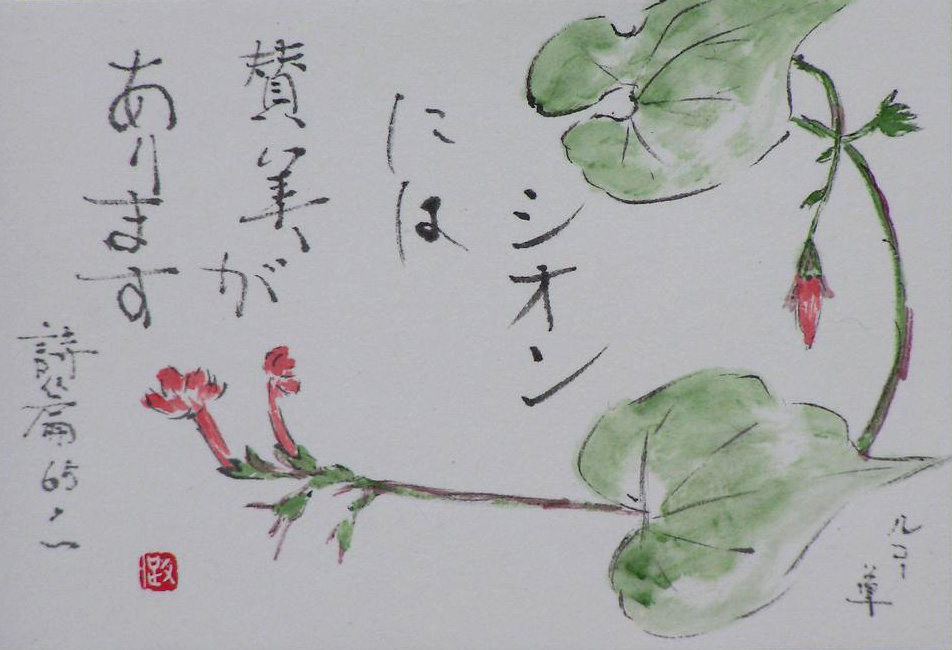 シオン
には
賛美が
あります
詩篇65・1
ルコー
草